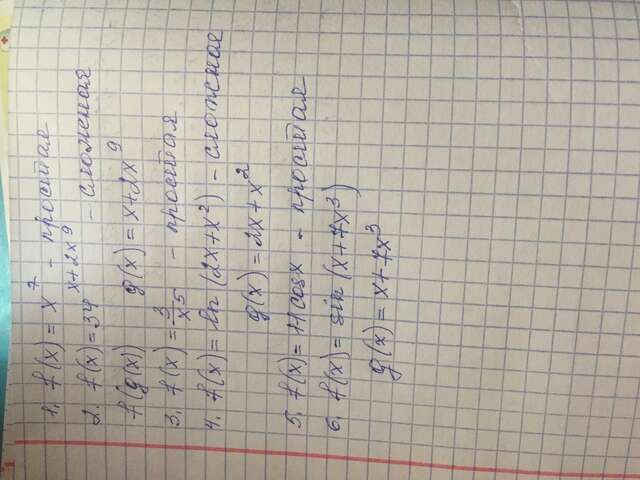 1. f(x) = x⁷ - простая
2. f(x) = 34^(x+2x⁹) - сложная
f(g(x)) g(x) = x+2x⁹
3. f(x) = 3/x⁵ - простая
4. f(x) = ln (2x+x²) - сложная
g(x) = 2x+x²
5. f(x) = 11cosx - простая
6. f(x) = sin (x+7x³)
g(x) = x+7x³